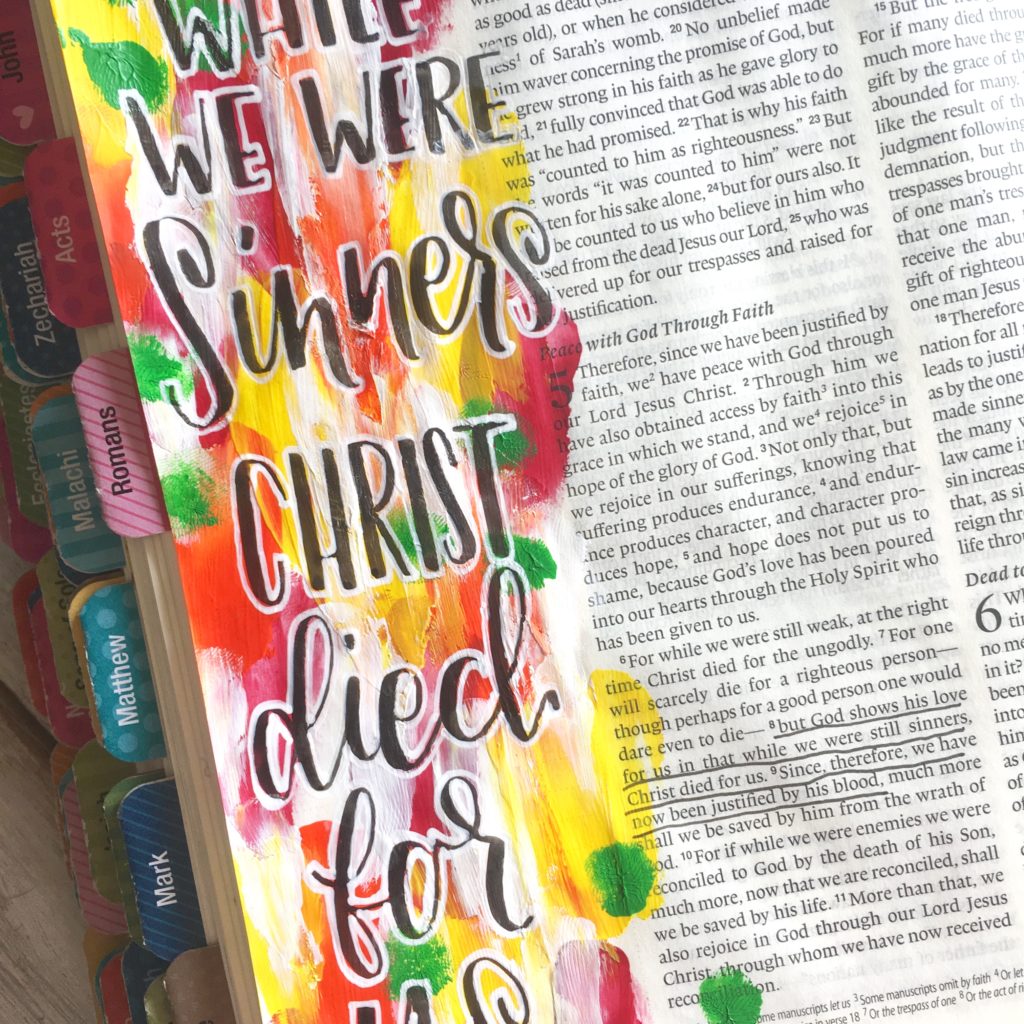 John
Acts
Zechariah
Ecclesiastes
Malachi
Romans
Matthew
Mark
WHILE
WE WERE
Sinners
CHRIST
died
for
US
as good as dead
years old), or when he considered
ness¹ of Sarah's womb. 20 No unbelief made
him waver concerning the promise of God, but
grew strong in his faith as he gave glory to
21 fully convinced that God was able to do
what he had promised. 22 That is why his faith
was “counted to him as righteousness.” 23 But
words “it was counted to him” were not
ten for his sake alone, 24 but for ours also. It
be counted to us who believe in him who
sed from the dead Jesus our Lord, 25 who was
vered up for our trespasses and raised for
justification.
Peace with God Through Faith
5
Therefore, since we have been justified by
faith, we² have peace with God through
our Lord Jesus Christ. 2 Through him we
have also obtained access by faith³ into this
grace in which we stand, and we⁴ rejoice⁵ in
hope of the glory of God. 3 Not only that, but
we rejoice in our sufferings, knowing that
suffering produces endurance, 4 and endur-
ance produces character, and character pro-
duces hope, 5 and hope does not put us to
shame, because God's love has been poured
into our hearts through the Holy Spirit who
has been given to us.
6 For while we were still weak, at the right
time Christ died for the ungodly. 7 For one
will scarcely die for a righteous person—
though perhaps for a good person one would
dare even to die— 8 but God shows his love
for us in that while we were still sinners,
Christ died for us. 9 Since, therefore, we have
now been justified by his blood, much more
shall we be saved by him from the wrath of
God. 10 For if while we were enemies we were
reconciled to God by the death of his Son,
much more, now that we are reconciled, shall
we be saved by his life. 11 More than that, we
also rejoice in God through our Lord Jesus
Christ, through whom we have now received
reconciliation.
some manuscripts let us 3 Some manuscripts omit by faith 4 Or let
in verse 18 7 Or the trespass of one 8 Or the act of
15 But the
For if many died
much more have the
gift by the grace of
abounded for many.
like the result of
judgment following
demnation, but
trespasses brought
of one man's
that one man,
receive the
gift of
one man Jesus
18 Therefore
nation for all
leads to
as by the one
made
the many
law came
sin
that, as
reign
life
Dead to
6
no
in it?
been
into
him
as
of